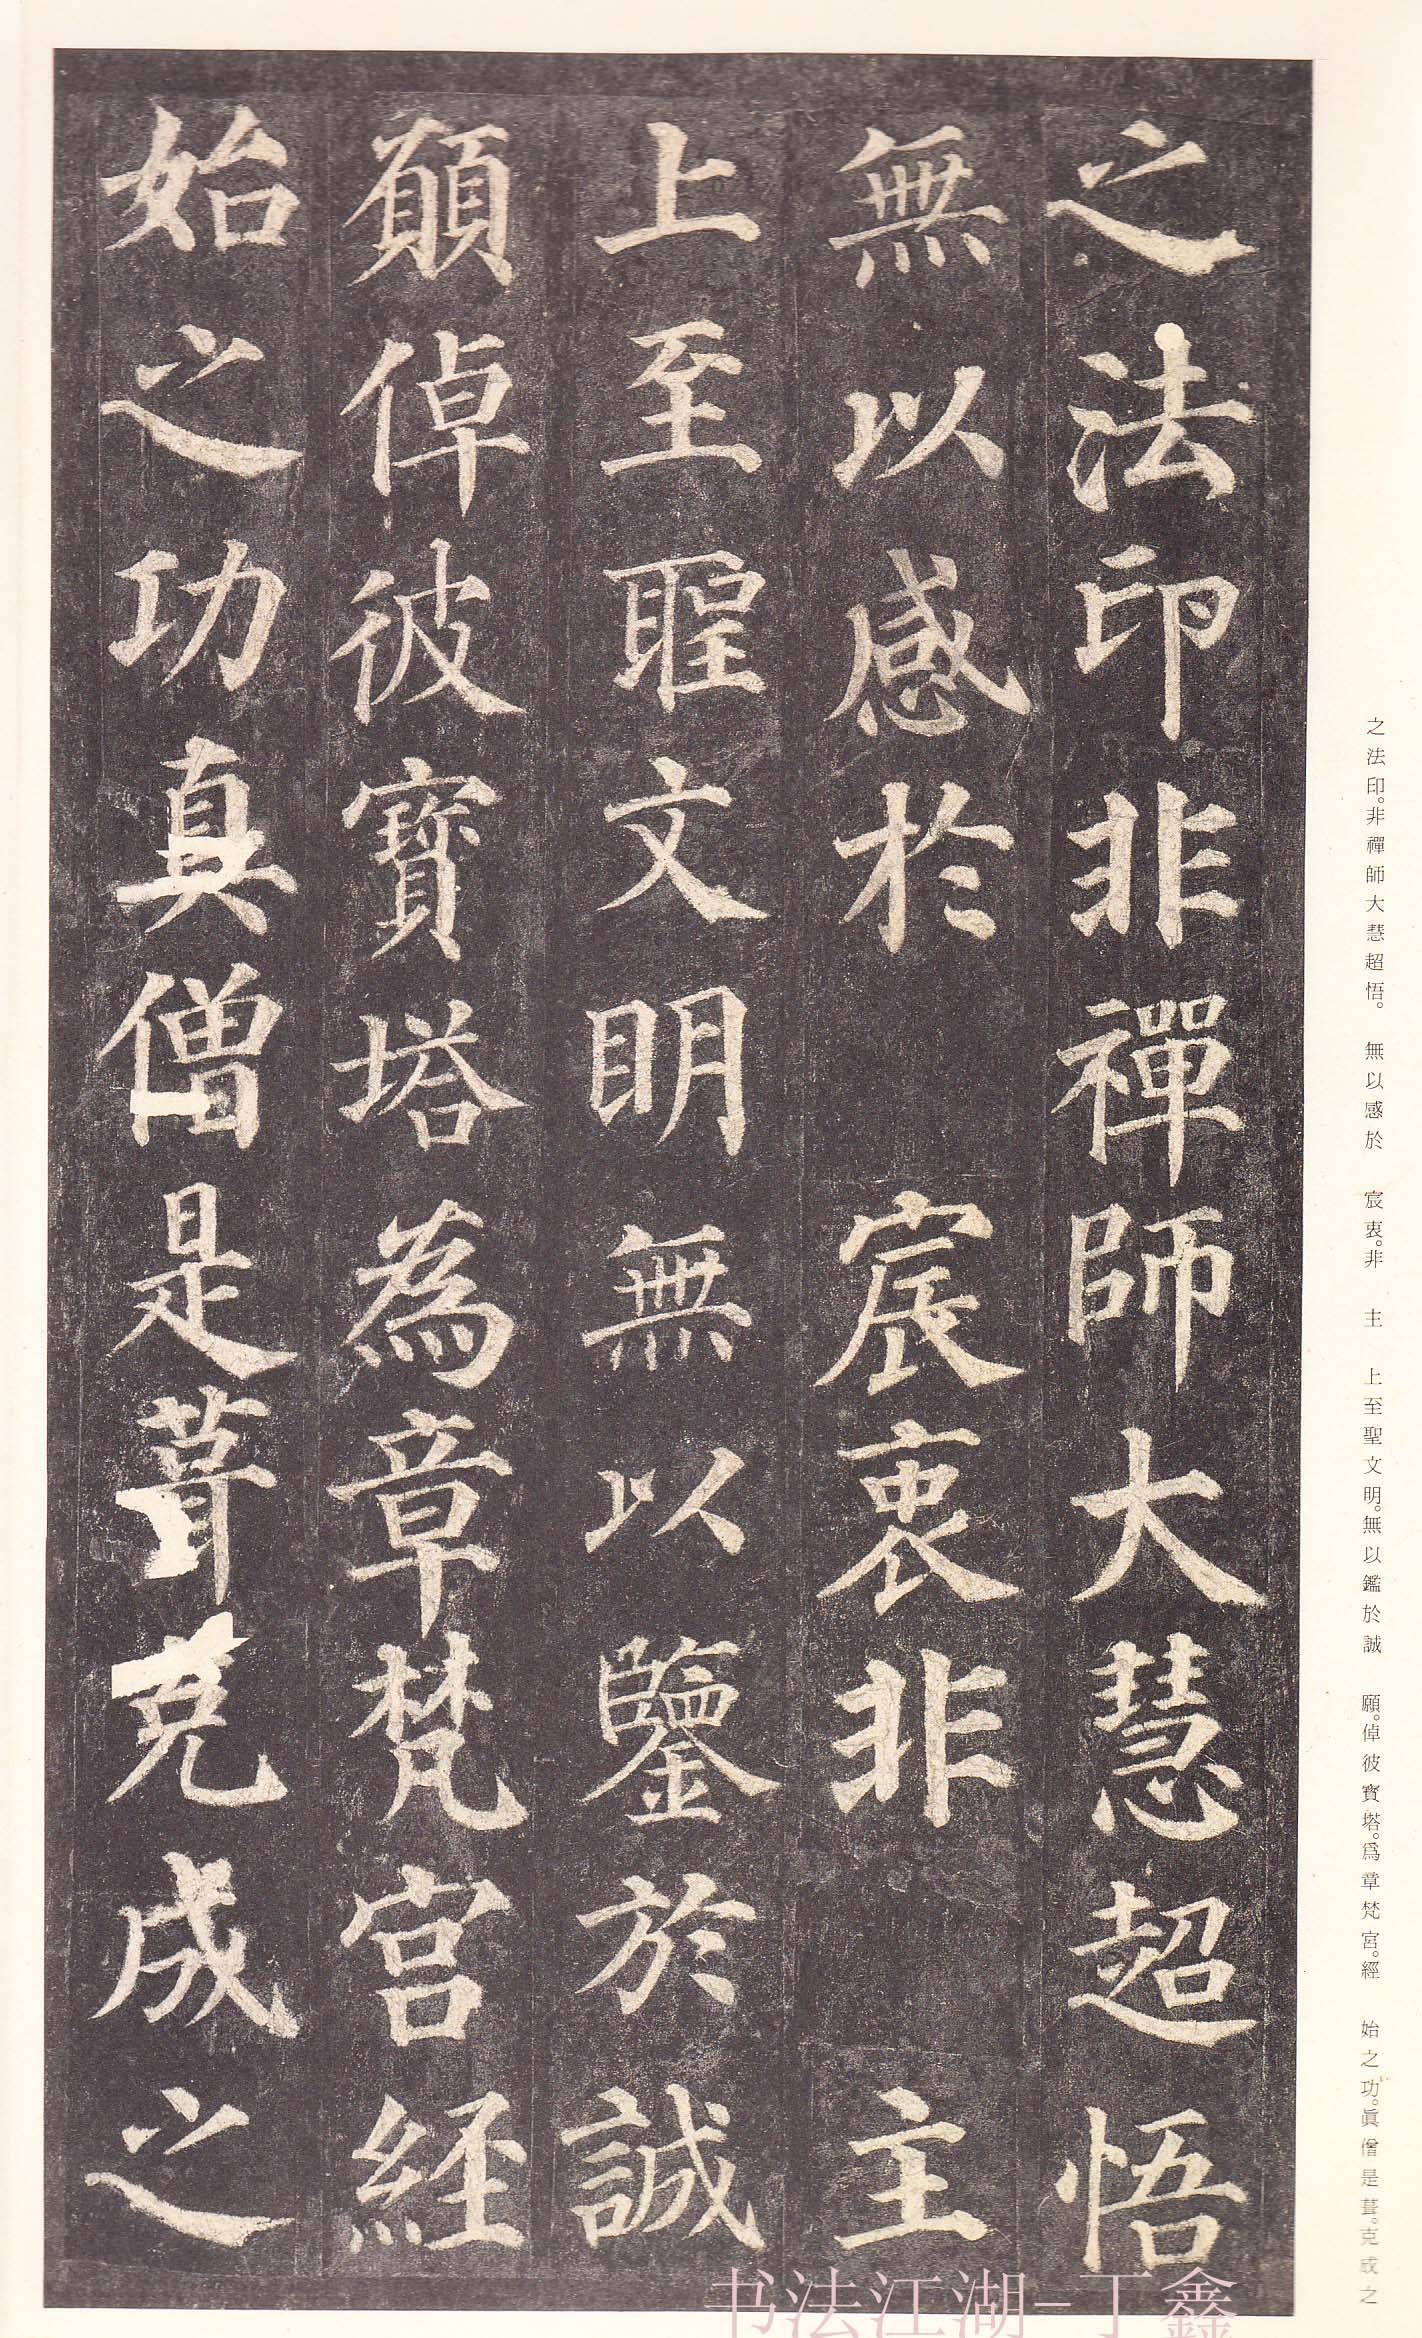 之法印非禪師大慧超悟
無以感於　宸衷非　主
上至聖文明無以鑒於誠
願倬彼寶塔為章梵宮経
始之功真僧是葺克成之
之法印。非禪師大慧超悟。　無以感於　宸衷。非　主　上至聖文明。無以鑑於誠　願。倬彼寶塔。爲章梵宮。經　始之功。眞僧是葺。克成之
书法江湖-丁鑫